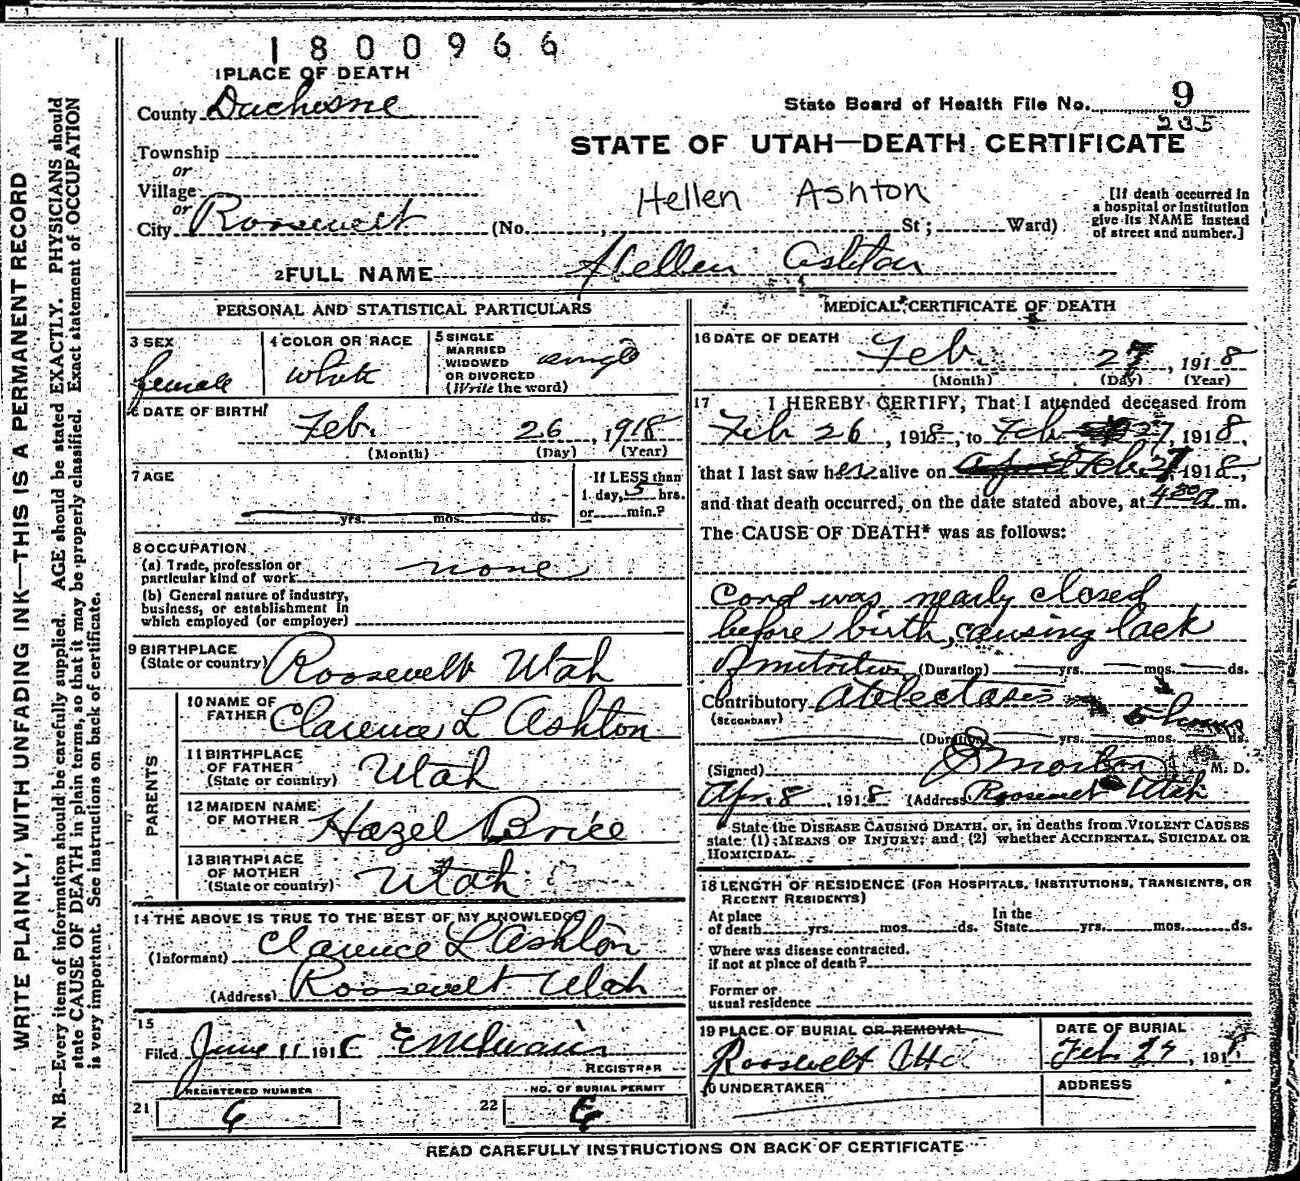 1800966
1 PLACE OF DEATH
County Duchesne
State Board of Health File No. 9
Township
or
Village
or
City Roosevelt
STATE OF UTAH—DEATH CERTIFICATE
Hellen Ashton
(No. , St; Ward)
[If death occurred in
a hospital or institution
give its NAME instead
of street and number.]
2 FULL NAME Hellen Ashton
WRITE PLAINLY, WITH UNFADING INK—THIS IS A PERMANENT RECORD
N. B.—Every item of information should be carefully supplied. AGE should be stated EXACTLY. PHYSICIANS should
state CAUSE OF DEATH in plain terms, so that it may be properly classified. Exact statement of OCCUPATION
is very important. See instructions on back of certificate.
PERSONAL AND STATISTICAL PARTICULARS
3 SEX
female
4 COLOR OR RACE
White
5 SINGLE
MARRIED
WIDOWED
OR DIVORCED
(Write the word)
single
6 DATE OF BIRTH
Feb. 26, 1918
(Month) (Day) (Year)
7 AGE
yrs. mos. ds.
If LESS than
1 day, 5 hrs.
or min.?
8 OCCUPATION
(a) Trade, profession or
particular kind of work none
(b) General nature of industry,
business, or establishment in
which employed (or employer)
9 BIRTHPLACE
(State or country) Roosevelt Utah
PARENTS
10 NAME OF
FATHER Clarence L Ashton
11 BIRTHPLACE
OF FATHER
(State or country) Utah
12 MAIDEN NAME
OF MOTHER Hazel Brice
13 BIRTHPLACE
OF MOTHER
(State or country) Utah
14 THE ABOVE IS TRUE TO THE BEST OF MY KNOWLEDGE
(Informant) Clarence L Ashton
(Address) Roosevelt Utah
15
Filed June 11 191
REGISTRAR
REGISTERED NUMBER
21 6
NO. OF BURIAL PERMIT
22 6
MEDICAL CERTIFICATE OF DEATH
16 DATE OF DEATH
Feb. 27, 1918
(Month) (Day) (Year)
17 I HEREBY CERTIFY, That I attended deceased from
Feb 26, 1918, to Feb 27, 1918,
that I last saw her alive on Feb 27 1918,
and that death occurred, on the date stated above, at 4 30 a m.
The CAUSE OF DEATH* was as follows:
Cord was nearly closed
before birth, causing lack
of nutrition (Duration) yrs. mos. ds.
Contributory atelectasis
(SECONDARY)
5 hours
(Duration) yrs. mos. ds.
(Signed) M. D.
Apr. 8, 1918 (Address) Roosevelt Utah
State the DISEASE CAUSING DEATH, or, in deaths from VIOLENT CAUSES
state (1) MEANS OF INJURY; and (2) whether ACCIDENTAL, SUICIDAL OR
HOMICIDAL.
18 LENGTH OF RESIDENCE (FOR HOSPITALS, INSTITUTIONS, TRANSIENTS, OR
RECENT RESIDENTS)
At place
of death yrs. mos. ds.
In the
State yrs. mos. ds.
Where was disease contracted.
if not at place of death?
Former or
usual residence
19 PLACE OF BURIAL OR REMOVAL
Roosevelt
DATE OF BURIAL
Feb 27, 1918
20 UNDERTAKER
ADDRESS
READ CAREFULLY INSTRUCTIONS ON BACK OF CERTIFICATE